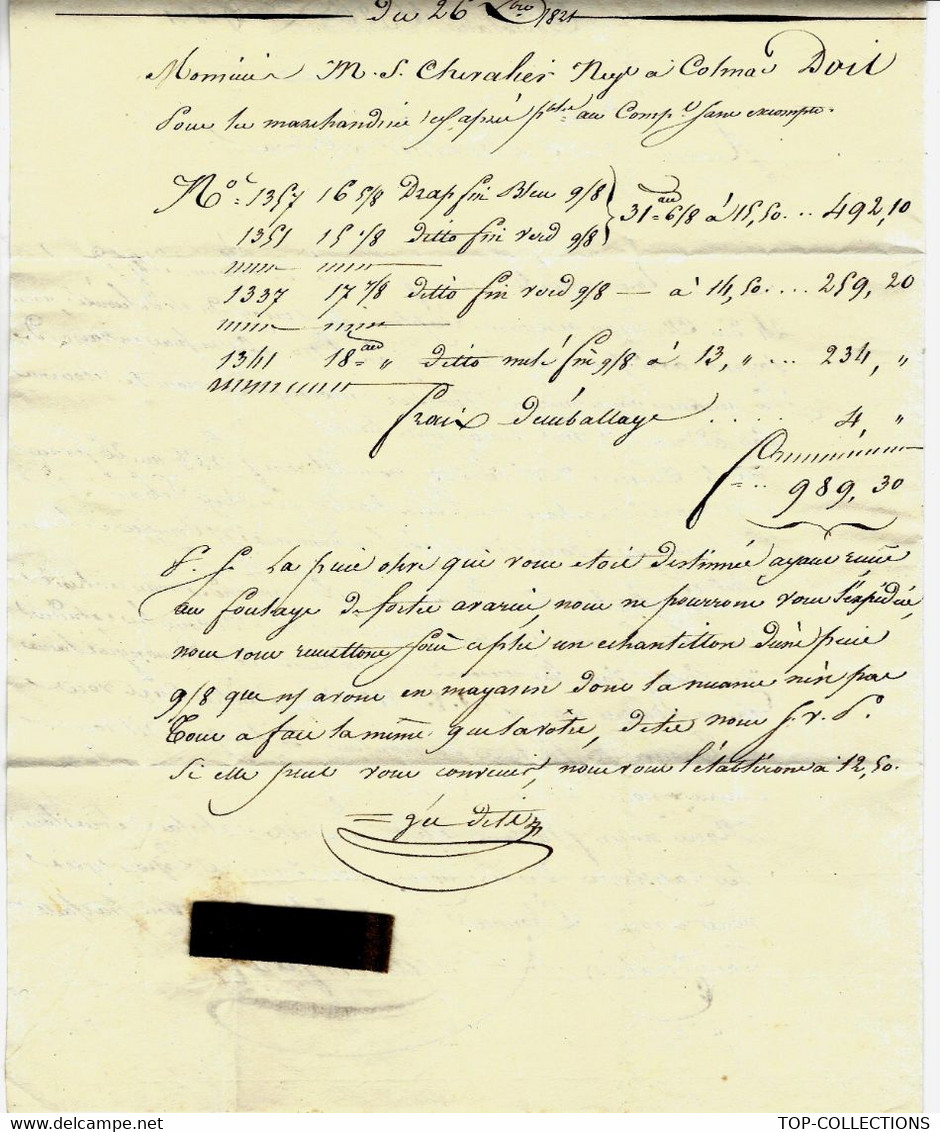 Du 26 bre 1821
Monsieur M. S. Chevalier Negt a Colmar Doit
Pour les marchandises cy après au Compt sans escompte.
No. 1357 16 5/8 Drap fin Bleu 9/8
31 au 6/8 à 15,50... 492,10
1351 15 1/8 ditto fin verd 9/8
1337 17 7/8 ditto fin verd 9/8 — à 14,50.... 259,20
1341 18 au " ditto melé fin 9/8 à 13, " ... 234, "
Fraix d'emballage .... 4, "
989,30
P. S. La piece olive que vous etoit destinnée ayant
au foulage de fortes avaries, nous ne pourrons vous l'expédier,
nous vous remettons sous ce pli un echantillon d'une piece
9/8 que ns avons en magasin dont la nuance n'est pas
Tout a fait la même que la vôtre, dites nous s. v. p.
Si elle peut vous convenir, nous vous l'établirons à 12,50.
TOP-COLLECTIONS